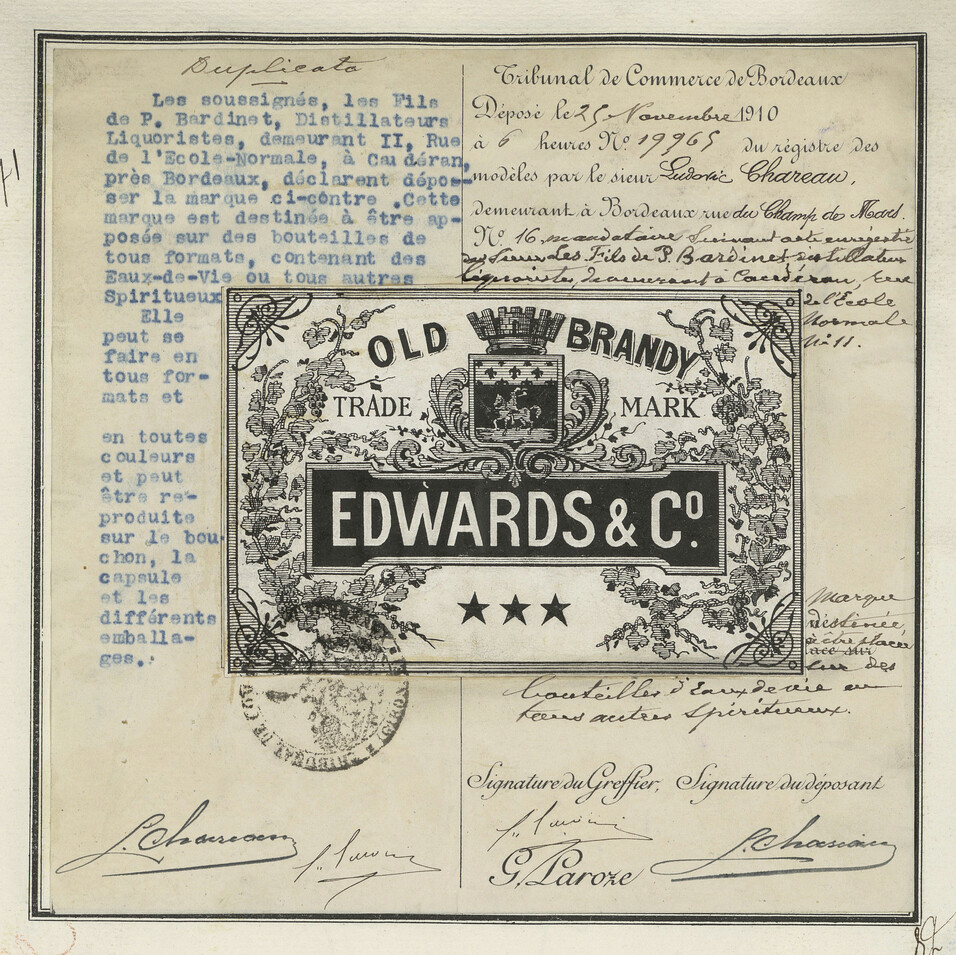 Duplicata
Les soussignés, les Fils
de P. Bardinet, Distillateurs
Liquoristes, demeurant II, Rue
de l'Ecole-Normale, à Caudéran,
près Bordeaux, déclarent dépo-
ser la marque ci-contre .Cette
marque est destinée à être ap-
posée sur des bouteilles de
tous formats, contenant des
Eaux-de-Vie ou tous autres
Spiritueux
Elle
peut se
faire en
tous for-
mats et
en toutes
couleurs
et peut
être re-
produite
sur le bou-
chon, la
capsule
et les
différents
emballa-
ges.
Tribunal de Commerce de Bordeaux
Déposé le 25 Novembre 1910
à 6 heures No. 19965 du régistre des
modèles par le sieur Ludovic Chareau,
demeurant à Bordeaux rue du Champ de Mars.
No. 16, mandataire suivant acte enregistré
des Sieurs Les Fils de P. Bardinet distillateurs
liquoristes, demeurant à Caudéran, rue
de l'École
Normale
No. 11.
OLD BRANDY
TRADE MARK
EDWARDS & Co.
★★★
Marque
destinée
à être placée
sur des
bouteilles d'Eaux de vie ou
tous autres spiritueux.
Signature du Greffier, Signature du déposant
L. Chareau
G. Laroze
L. Chareau